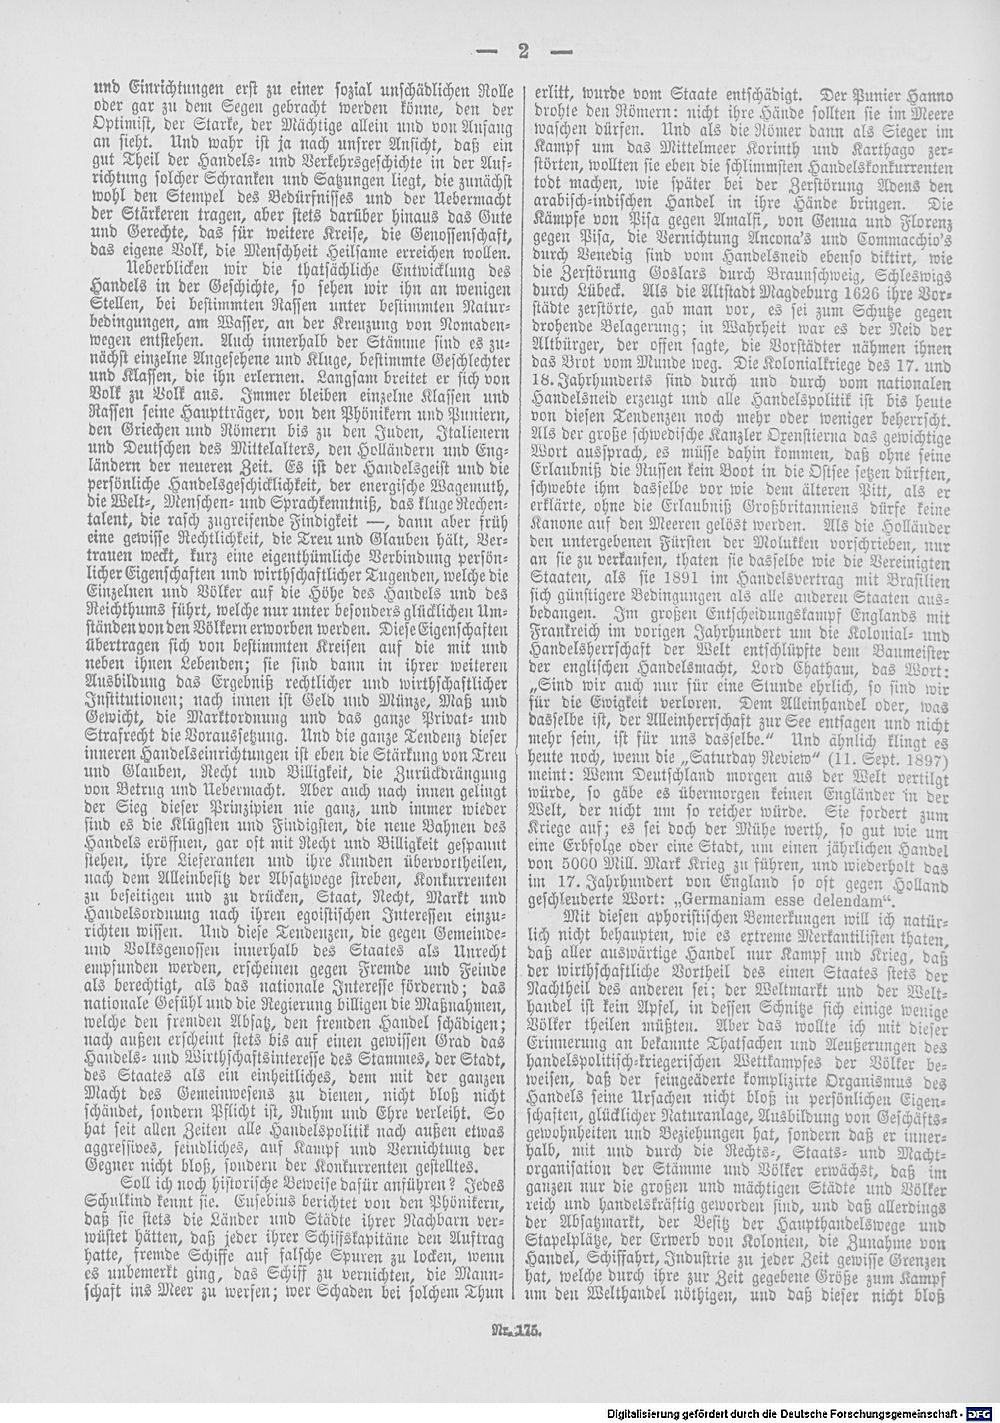 — 2 —
und Einrichtungen erst zu einer sozial unschädlichen Rolle
oder gar zu dem Segen gebracht werden könne, den der
Optimist, der Starke, der Mächtige allein und von Anfang
an sieht. Und wahr ist ja nach unsrer Ansicht, daß ein
gut Theil der Handels- und Verkehrsgeschichte in der Auf-
richtung solcher Schranken und Satzungen liegt, die zunächst
wohl den Stempel des Bedürfnisses und der Uebermacht
der Stärkeren tragen, aber stets darüber hinaus das Gute
und Gerechte, das für weitere Kreise, die Genossenschaft,
das eigene Volk, die Menschheit Heilsame erreichen wollen.
Ueberblicken wir die thatsächliche Entwicklung des
Handels in der Geschichte, so sehen wir ihn an wenigen
Stellen, bei bestimmten Rassen unter bestimmten Natur-
bedingungen, am Wasser, an der Kreuzung von Nomaden-
wegen entstehen. Auch innerhalb der Stämme sind es zu-
nächst einzelne Angesehene und Kluge, bestimmte Geschlechter
und Klassen, die ihn erlernen. Langsam breitet er sich von
Volk zu Volk aus. Immer bleiben einzelne Klassen und
Rassen seine Hauptträger, von den Phönikern und Puniern,
den Griechen und Römern bis zu den Juden, Italienern
und Deutschen des Mittelalters, den Holländern und Eng-
ländern der neueren Zeit. Es ist der Handelsgeist und die
persönliche Handelsgeschicklichkeit, der energische Wagemuth,
die Welt-, Menschen- und Sprachkenntniß, das kluge Rechen-
talent, die rasch zugreifende Findigkeit —, dann aber früh
eine gewisse Rechtlichkeit, die Treu und Glauben hält, Ver-
trauen weckt, kurz eine eigenthümliche Verbindung persön-
licher Eigenschaften und wirthschaftlicher Tugenden, welche die
Einzelnen und Völker auf die Höhe des Handels und des
Reichthums führt, welche nur unter besonders glücklichen Um-
ständen von den Völkern erworben werden. Diese Eigenschaften
übertragen sich von bestimmten Kreisen auf die mit und
neben ihnen Lebenden; sie sind dann in ihrer weiteren
Ausbildung das Ergebniß rechtlicher und wirthschaftlicher
Institutionen; nach innen ist Geld und Münze, Maß und
Gewicht, die Marktordnung und das ganze Privat- und
Strafrecht die Voraussetzung. Und die ganze Tendenz dieser
inneren Handelseinrichtungen ist eben die Stärkung von Treu
und Glauben, Recht und Billigkeit, die Zurückdrängung
von Betrug und Uebermacht. Aber auch nach innen gelingt
der Sieg dieser Prinzipien nie ganz, und immer wieder
sind es die Klügsten und Findigsten, die neue Bahnen des
Handels eröffnen, gar oft mit Recht und Billigkeit gespannt
stehen, ihre Lieferanten und ihre Kunden übervortheilen,
nach dem Alleinbesitz der Absatzwege streben, Konkurrenten
zu beseitigen und zu drücken, Staat, Recht, Markt und
Handelsordnung nach ihren egoistischen Interessen einzu-
richten wissen. Und diese Tendenzen, die gegen Gemeinde-
und Volksgenossen innerhalb des Staates als Unrecht
empfunden werden, erscheinen gegen Fremde und Feinde
als berechtigt, als das nationale Interesse fördernd; das
nationale Gefühl und die Regierung billigen die Maßnahmen,
welche den fremden Absatz, den fremden Handel schädigen;
nach außen erscheint stets bis auf einen gewissen Grad das
Handels- und Wirthschaftsinteresse des Stammes, der Stadt,
des Staates als ein einheitliches, dem mit der ganzen
Macht des Gemeinwesens zu dienen, nicht bloß nicht
schändet, sondern Pflicht ist, Ruhm und Ehre verleiht. So
hat seit allen Zeiten alle Handelspolitik nach außen etwas
aggressives, feindliches, auf Kampf und Vernichtung der
Gegner nicht bloß, sondern der Konkurrenten gestelltes.
Soll ich noch historische Beweise dafür anführen? Jedes
Schulkind kennt sie. Eusebius berichtet von den Phönikern,
daß sie stets die Länder und Städte ihrer Nachbarn ver-
wüstet hätten, daß jeder ihrer Schiffskapitäne den Auftrag
hatte, fremde Schiffe auf falsche Spuren zu locken, wenn
es unbemerkt ging, das Schiff zu vernichten, die Mann-
schaft ins Meer zu werfen; wer Schaden bei solchem Thun
erlitt, wurde vom Staate entschädigt. Der Punier Hanno
drohte den Römern: nicht ihre Hände sollten sie im Meere
waschen dürfen. Und als die Römer dann als Sieger im
Kampf um das Mittelmeer Korinth und Karthago zer-
störten, wollten sie eben die schlimmsten Handelskonkurrenten
todt machen, wie später bei der Zerstörung Adens den
arabisch-indischen Handel in ihre Hände bringen. Die
Kämpfe von Pisa gegen Amalfi, von Genua und Florenz
gegen Pisa, die Vernichtung Ancona's und Commacchio's
durch Venedig sind vom Handelsneid ebenso diktirt, wie
die Zerstörung Goslars durch Braunschweig, Schleswigs
durch Lübeck. Als die Altstadt Magdeburg 1626 ihre Vor-
städte zerstörte, gab man vor, es sei zum Schutze gegen
drohende Belagerung; in Wahrheit war es der Neid der
Altbürger, der offen sagte, die Vorstädter nähmen ihnen
das Brot vom Munde weg. Die Kolonialkriege des 17. und
18. Jahrhunderts sind durch und durch vom nationalen
Handelsneid erzeugt und alle Handelspolitik ist bis heute
von diesen Tendenzen noch mehr oder weniger beherrscht.
Als der große schwedische Kanzler Oxenstierna das gewichtige
Wort aussprach, es müsse dahin kommen, daß ohne seine
Erlaubniß die Russen kein Boot in die Ostsee setzen dürften,
schwebte ihm dasselbe vor wie dem älteren Pitt, als er
erklärte, ohne die Erlaubniß Großbritanniens dürfe keine
Kanone auf den Meeren gelöst werden. Als die Holländer
den untergebenen Fürsten der Molukken vorschrieben, nur
an sie zu verkaufen, thaten sie dasselbe wie die Vereinigten
Staaten, als sie 1891 im Handelsvertrag mit Brasilien
sich günstigere Bedingungen als alle anderen Staaten aus-
bedangen. Im großen Entscheidungskampf Englands mit
Frankreich im vorigen Jahrhundert um die Kolonial- und
Handelsherrschaft der Welt entschlüpfte dem Baumeister
der englischen Handelsmacht, Lord Chatham, das Wort:
„Sind wir auch nur für eine Stunde ehrlich, so sind wir
für die Ewigkeit verloren. Dem Alleinhandel oder, was
dasselbe ist, der Alleinherrschaft zur See entsagen und nicht
mehr sein, ist für uns dasselbe.“ Und ähnlich klingt es
heute noch, wenn die „Saturday Review“ (11. Sept. 1897)
meint: Wenn Deutschland morgen aus der Welt vertilgt
würde, so gäbe es übermorgen keinen Engländer in der
Welt, der nicht um so reicher würde. Sie fordert zum
Kriege auf; es sei doch der Mühe werth, so gut wie um
eine Erbfolge oder eine Stadt, um einen jährlichen Handel
von 5000 Mill. Mark Krieg zu führen, und wiederholt das
im 17. Jahrhundert von England so oft gegen Holland
geschleuderte Wort: „Germaniam esse delendam“.
Mit diesen aphoristischen Bemerkungen will ich natür-
lich nicht behaupten, wie es extreme Merkantilisten thaten,
daß aller auswärtige Handel nur Kampf und Krieg, daß
der wirthschaftliche Vortheil des einen Staates stets der
Nachtheil des anderen sei; der Weltmarkt und der Welt-
handel ist kein Apfel, in dessen Schnitze sich einige wenige
Völker theilen müßten. Aber das wollte ich mit dieser
Erinnerung an bekannte Thatsachen und Aeußerungen des
handelspolitisch-kriegerischen Wettkampfes der Völker be-
weisen, daß der feingeäderte komplizirte Organismus des
Handels seine Ursachen nicht bloß in persönlichen Eigen-
schaften, glücklicher Naturanlage, Ausbildung von Geschäfts-
gewohnheiten und Beziehungen hat, sondern daß er inner-
halb, mit und durch die Rechts-, Staats- und Macht-
organisation der Stämme und Völker erwächst, daß im
ganzen nur die großen und mächtigen Städte und Völker
reich und handelskräftig geworden sind, und daß allerdings
der Absatzmarkt, der Besitz der Haupthandelswege und
Stapelplätze, der Erwerb von Kolonien, die Zunahme von
Handel, Schiffahrt, Industrie zu jeder Zeit gewisse Grenzen
hat, welche durch ihre zur Zeit gegebene Größe zum Kampf
um den Welthandel nöthigen, und daß dieser nicht bloß
Nr. 175.
Digitalisierung gefördert durch die Deutsche Forschungsgemeinschaft - DFG